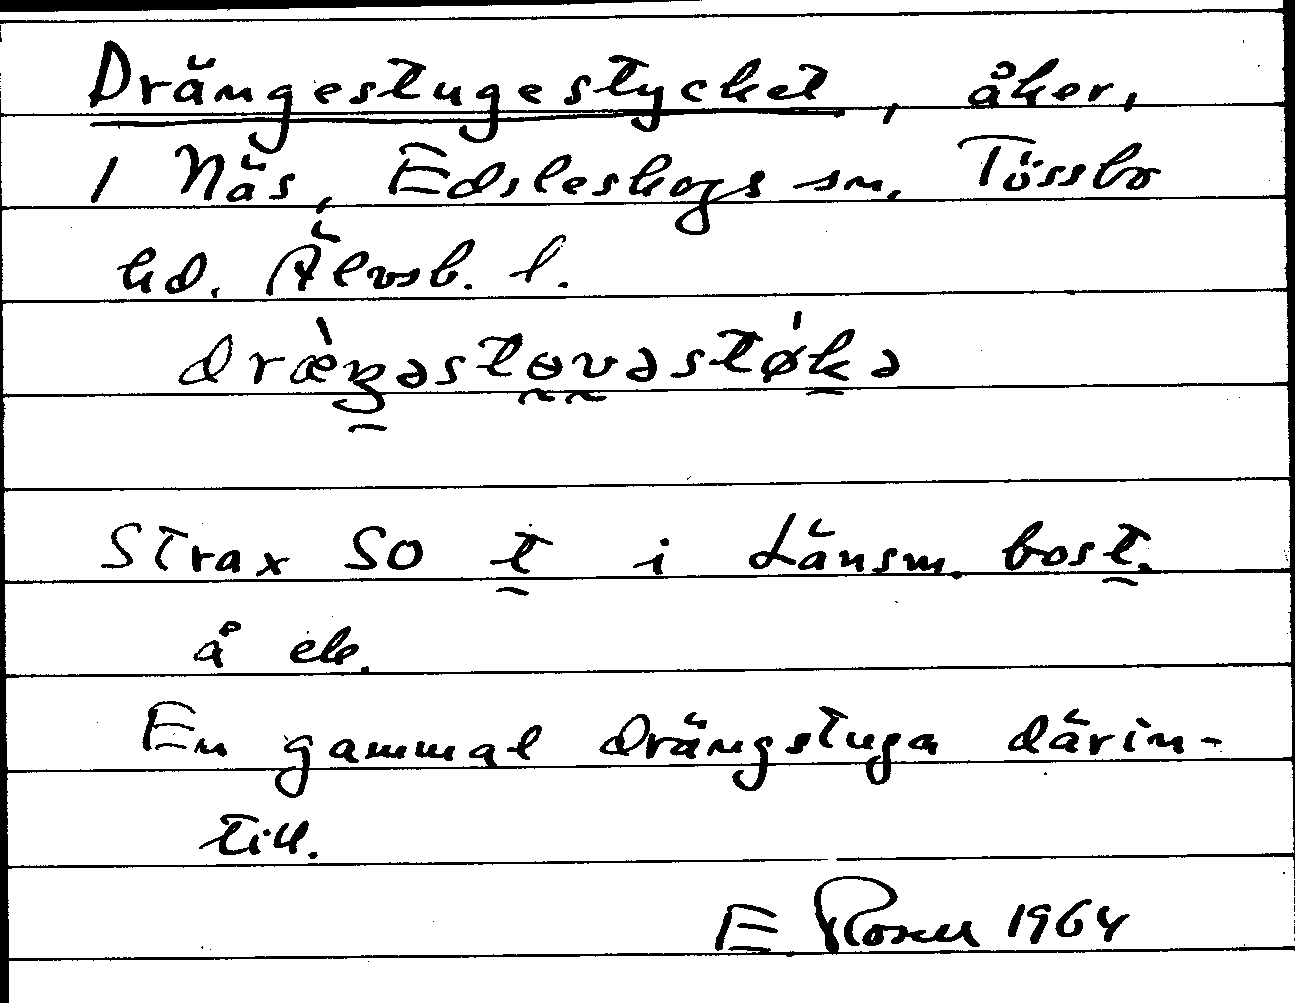 Drängestugestycket, åker,
1 Näs, Edsleskogs sn, Tössbo
hd. Älvsb. l.
dræ̀ŋəstɵvəstǿkə
Strax SO t i Länsm. bost.
å ek.
En gammal drängstuga därin-
till.
E Rosell 1964